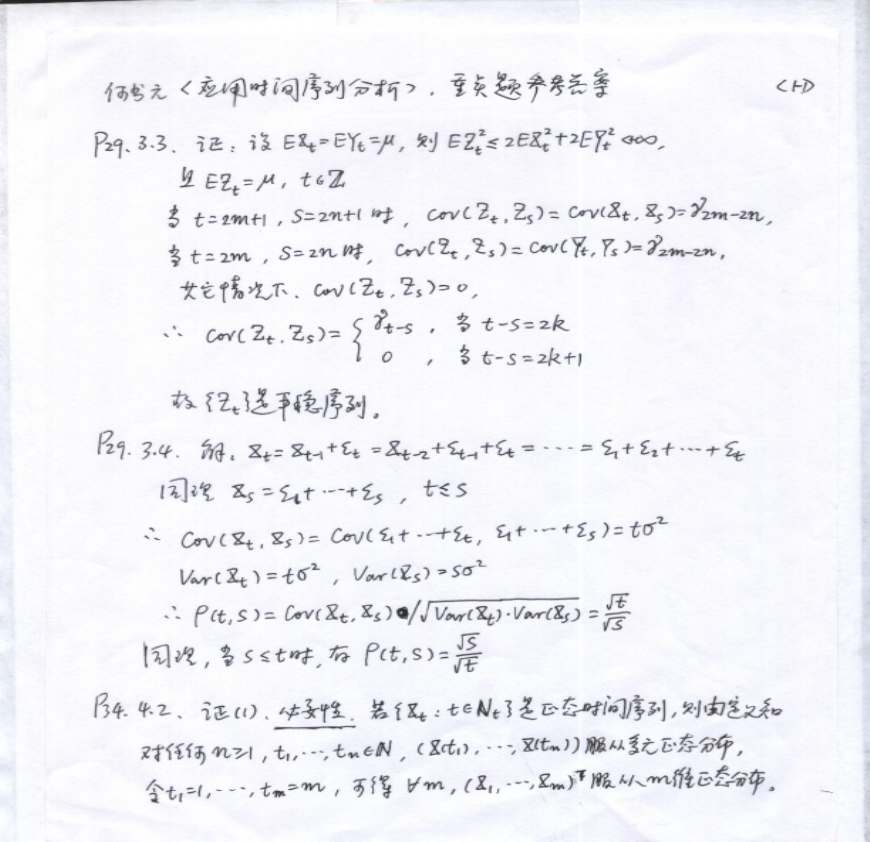 何书元《应用时间序列分析》, 重点题参考答案 <1>
P29. 3.3. 证: 设 EX_t=EY_t=μ, 则 EZ_t^2≤2EX_t^2+2EY_t^2<∞,
且 EZ_t=μ, t∈ℤ
当 t=2m+1, S=2n+1 时, Cov(Z_t, Z_s)=Cov(X_t, X_s)=γ_{2m-2n},
当 t=2m, S=2n 时, Cov(Z_t, Z_s)=Cov(Y_t, Y_s)=γ_{2m-2n},
其它情况下, Cov(Z_t, Z_s)=0,
∴ Cov(Z_t, Z_s)={ γ_{t-s}, 当 t-s=2k
0, 当 t-s=2k+1
故{Z_t}是平稳序列。
P29. 3.4. 解: X_t=X_{t-1}+ε_t=X_{t-2}+ε_{t-1}+ε_t=⋯=ε_1+ε_2+⋯+ε_t
同理 X_s=ε_1+⋯+ε_s, t≤s
∴ Cov(X_t, X_s)=Cov(ε_1+⋯+ε_t, ε_1+⋯+ε_s)=tσ^2
Var(X_t)=tσ^2, Var(X_s)=sσ^2
∴ ρ(t,s)=Cov(X_t, X_s)/√(Var(X_t)·Var(X_s))=√t/√s
同理, 当 s≤t 时, 有 ρ(t,s)=√s/√t
P34. 4.2. 证(1). 必要性. 若{X_t: t∈N_t}是正态时间序列, 则由定义知
对任何 n≥1, t_1,⋯,t_n∈N, (X(t_1),⋯,X(t_n)) 服从多元正态分布,
令 t_1=1,⋯,t_m=m, 可得 ∀m, (X_1,⋯,X_m)^T 服从 m 维正态分布。